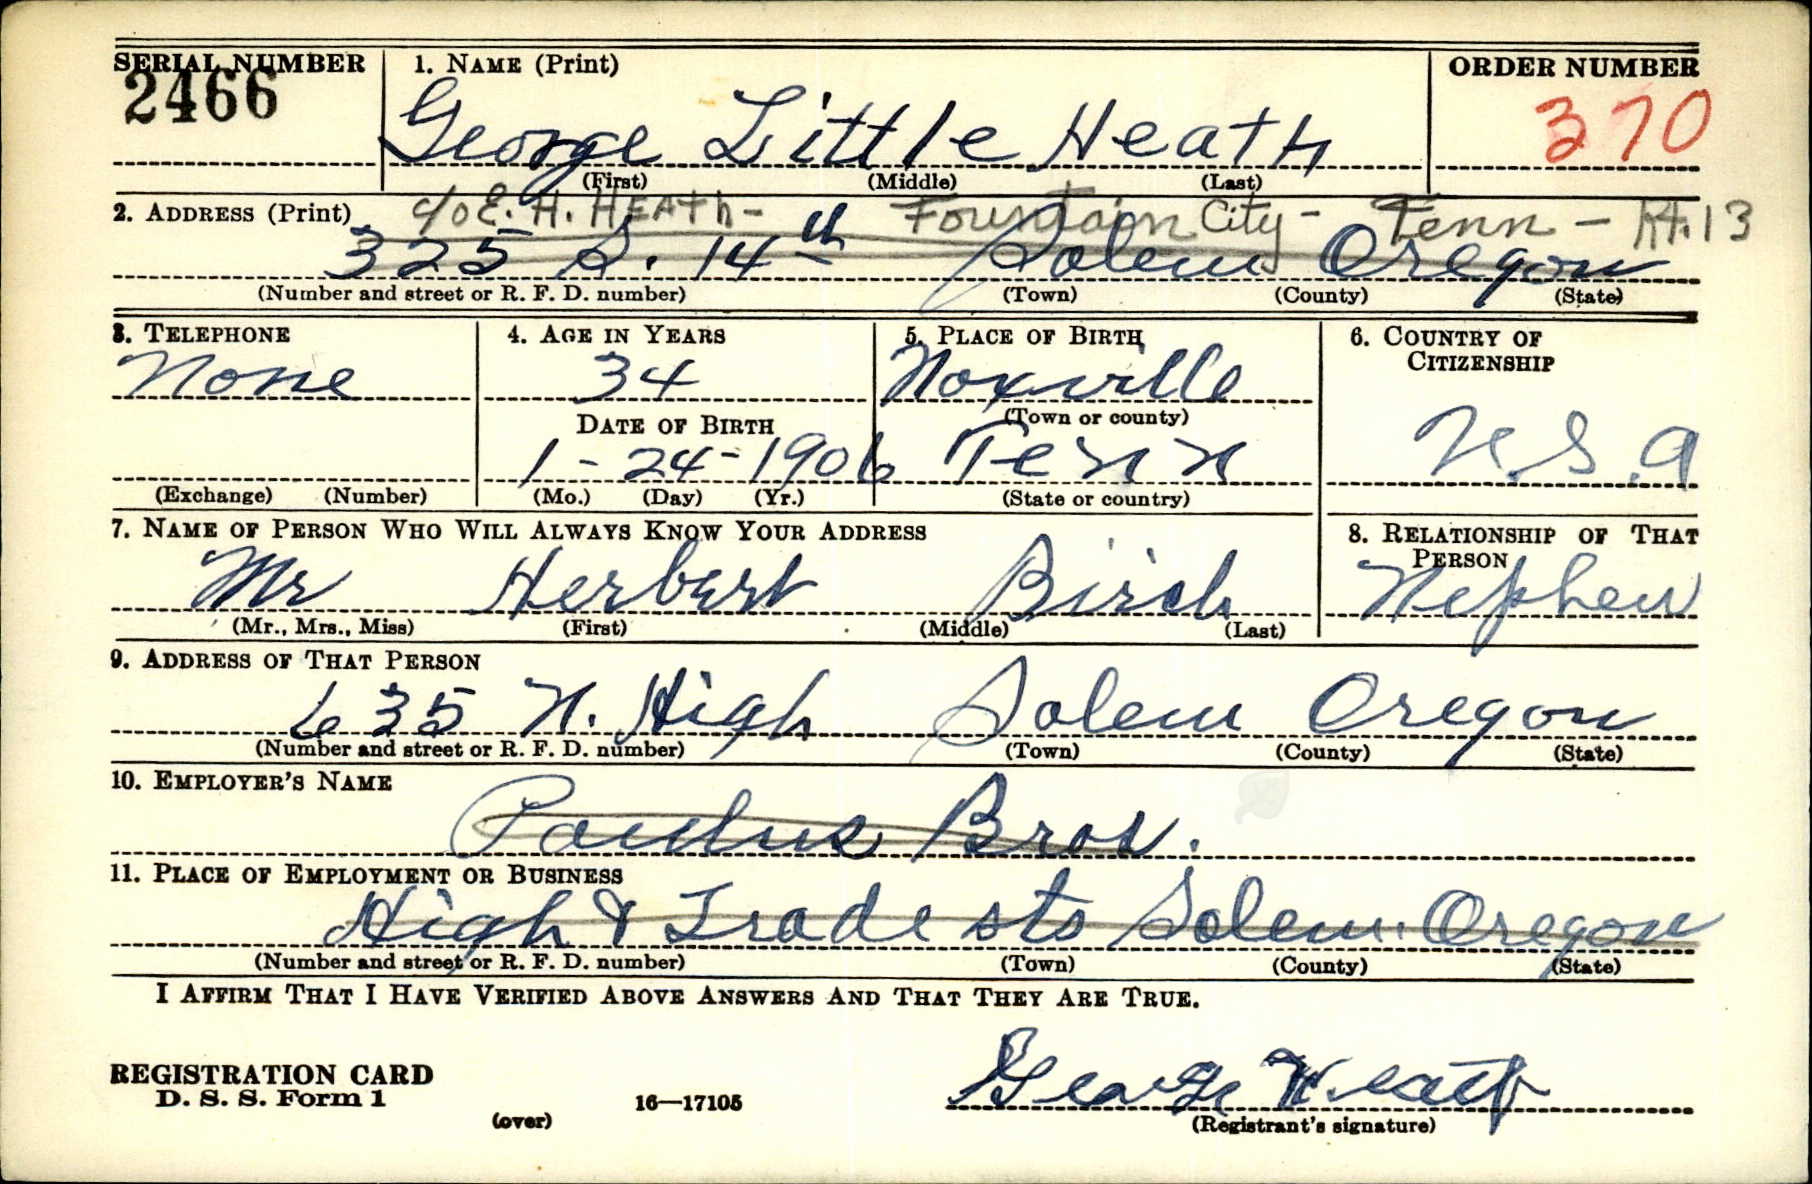 SERIAL NUMBER 1. NAME (Print) ORDER NUMBER
2466 George Little Heath 370
(First) (Middle) (Last)
2. ADDRESS (Print) c/o E. H. HEATH - Fountain City - Tenn - Rt. 13
325 S. 14th Salem Oregon
(Number and street or R. F. D. number) (Town) (County) (State)
3. TELEPHONE 4. AGE IN YEARS 5. PLACE OF BIRTH 6. COUNTRY OF
CITIZENSHIP
None 34 Noxville
DATE OF BIRTH (Town or county)
1-24-1906 Tenn U.S.A
(Exchange) (Number) (Mo.) (Day) (Yr.) (State or country)
7. NAME OF PERSON WHO WILL ALWAYS KNOW YOUR ADDRESS 8. RELATIONSHIP OF THAT
PERSON
Mr Herbert Birch Nephew
(Mr., Mrs., Miss) (First) (Middle) (Last)
9. ADDRESS OF THAT PERSON
635 N. High Salem Oregon
(Number and street or R. F. D. number) (Town) (County) (State)
10. EMPLOYER'S NAME
Paulus Bros.
11. PLACE OF EMPLOYMENT OR BUSINESS
High & Trade sts Salem Oregon
(Number and street or R. F. D. number) (Town) (County) (State)
I AFFIRM THAT I HAVE VERIFIED ABOVE ANSWERS AND THAT THEY ARE TRUE.
George Heath
REGISTRATION CARD
D. S. S. Form 1 (over) 16—17105 (Registrant's signature)